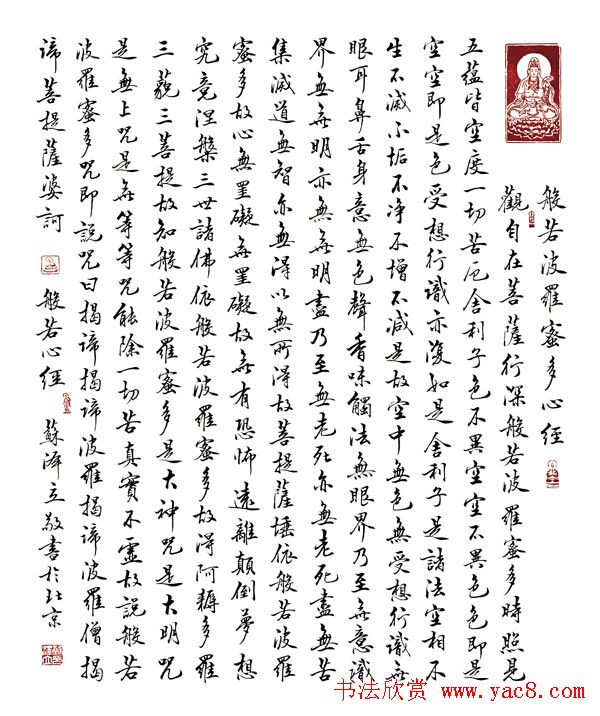 般若波羅蜜多心經
觀自在菩薩行深般若波羅蜜多時照見
五蘊皆空度一切苦厄舍利子色不異空空不異色色即是
空空即是色受想行識亦復如是舍利子是諸法空相不
生不滅不垢不净不增不減是故空中無色無受想行識無
眼耳鼻舌身意無色聲香味觸法無眼界乃至無意識
界無無明亦無無明盡乃至無老死亦無老死盡無苦
集滅道無智亦無得以無所得故菩提薩埵依般若波羅
蜜多故心無罣礙無罣礙故無有恐怖遠離顛倒夢想
究竟涅槃三世諸佛依般若波羅蜜多故得阿耨多羅
三藐三菩提故知般若波羅蜜多是大神咒是大明咒
是無上咒是無等等咒能除一切苦真實不虛故說般若
波羅蜜多咒即說咒曰揭諦揭諦波羅揭諦波羅僧揭
諦菩提薩婆訶 般若心經 蘇澤立敬書於北京
书法欣赏
www.yac8.com